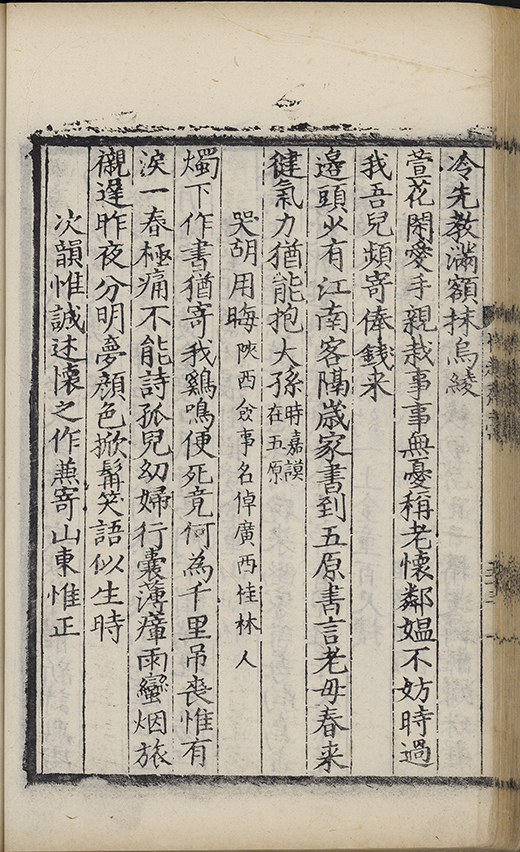 冷先教滿額抹烏綾
萱花閑愛手親栽事事無憂稱老懷鄰媼不妨時過
我吾兒頻寄俸錢来
邊頭少有江南客隔歳家書到五原書言老母春来
健氣力猶能抱大孫時嘉謨在五原
哭胡用晦陝西僉事名倬廣西桂林人
燭下作書猶寄我鷄鳴便死竟何為千里吊喪惟有
淚一春極痛不能詩孤兒幼婦行囊薄瘴雨蠻烟旅
櫬遲昨夜分明夢顔色掀髯笑語似生時
次韻惟誠述懷之作蕉寄山東惟正